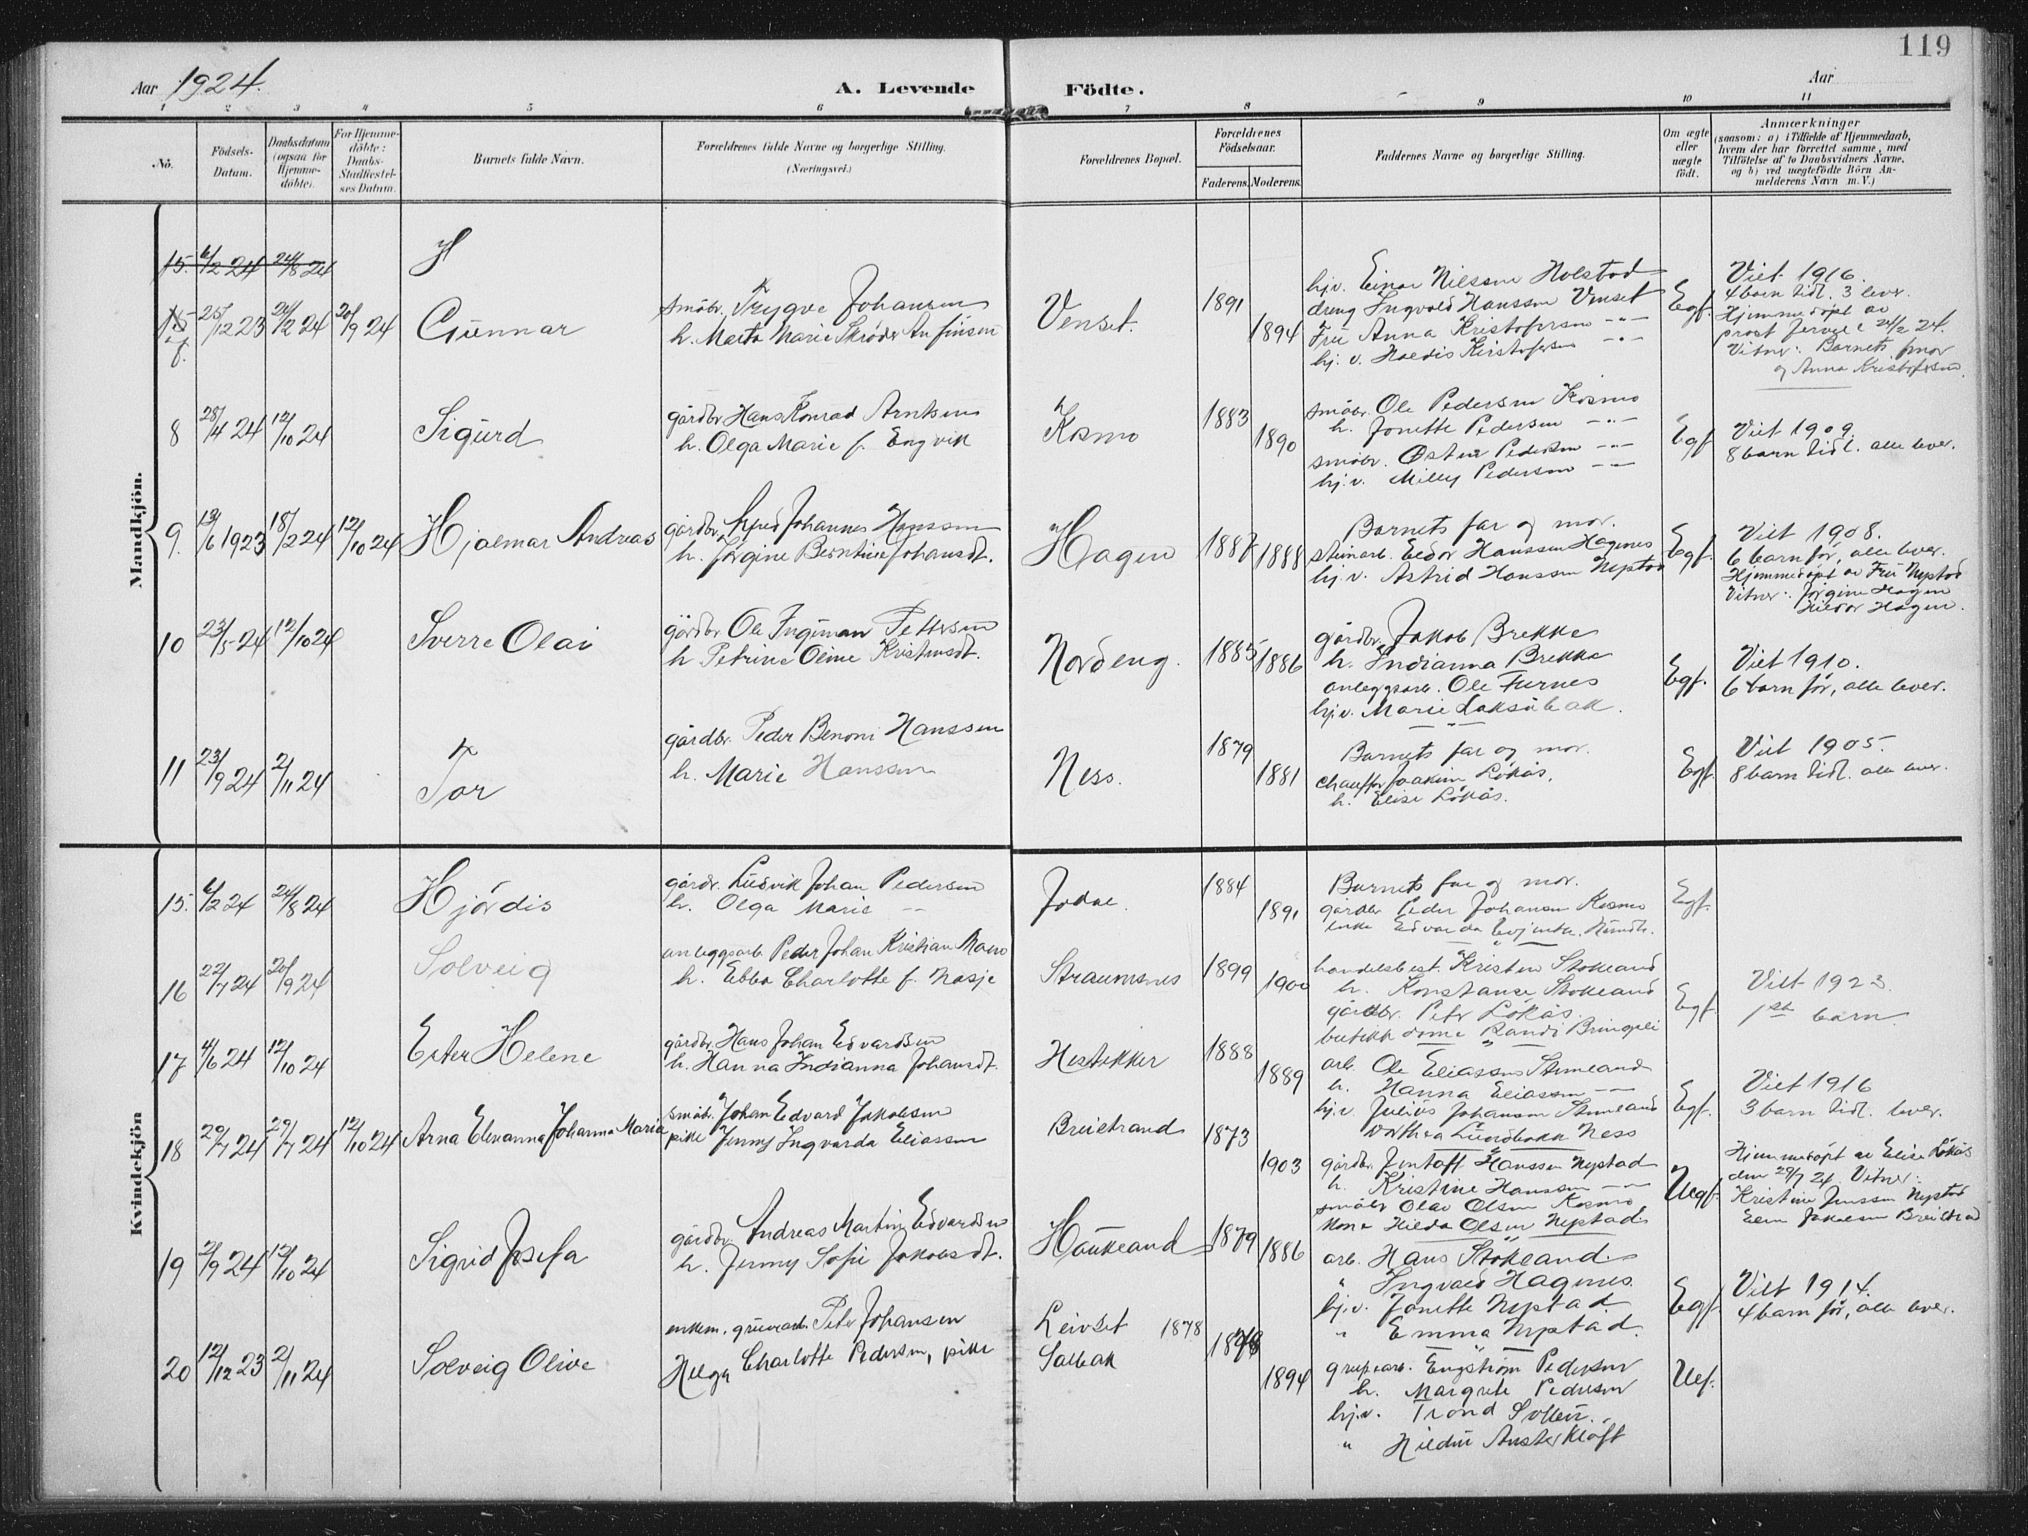 119
Aar 1924.
A. Levende Födte.
Aar
1 2 3 4 5 6 7 8 9 10 11
No.
Födsels-
Datum.
Daabsdatum
(ogsaa for
Hjemme-
döbte).
For Hjemme-
döbte:
Daabs-
Stadfæstel-
ses Datum.
Barnets fulde Navn.
Forældrenes fulde Navne og borgerlige Stilling.
(Næringsvei.)
Forældrenes Bopæl.
Forældrenes
Födselsaar.
Faderens. Moderens.
Faddernes Navne og borgerlige Stilling.
Om ægte
eller
uægte
födt.
Anmærkninger
(saasom: a) i Tilfælde af Hjemmedaab,
hvem der har forrettet samme, med
Tilföielse af to Daabsvidners Navne,
og b) ved uægtefödte Börn An-
melderens Navn m. V.)
Mandkjön.
15. 6/2 24 24/8 24 H
25/12 23 24/2 24 20/9 24
Gunnar
småbr. Trygve Johansen
h. Marta Marie Skrøder Anfinsen
Venset.
1891
1894
hj.v. Einar Nilssen Holstad
dreng Ingvald Hanssen Venset
Fru Anna Kristofersen -"-
hj.v. Hordis Kristofersen -"-
Egf.
Viet 1916.
4 barn tidl. 3 lever.
Hjemmedöpt av
prost 24/2 24.
Vitner: Barnets
og Anna Kristofersen.
8 28/4 24 12/10 24
Sigurd
gårdbr. Hans Konrad Arntsen
h. Olga Marie f. Engvik
Kosmo
1883
1890
småbr. Ole Pedersen Kosmo
h. Jonette Pedersen -"-
småbr. Pedersen -"-
hj.v. Milly Pedersen -"-
Egf
Viet 1909.
8 barn tidl. alle lever.
9. 13/6 1923 18/2 24 12/10 24
Hjalmar Andreas
gårdbr. Alfred Johannes Hanssen
h. Jørgine Berntine Johansdt.
Hagen
1887
1888
Barnets far og mor.
stenarb. Eldor Hanssen Hagenes
hj.v. Astrid Hanssen Nystad
Egf.
Viet 1908.
6 barn før, alle lever.
Hjemmedöpt av Fru Nystad
Vitner: Jørgine Hagen
Hildor Hagen.
10 23/5 24 12/10 24
Sverre Olai
gårdbr. Ole Ingeman Pettersen
h. Petrine Oline Kristensdt.
Nordeng.
1885
1886
gårdbr. Jakob Brekke
h. Indianna Brekke
anleggsarb. Ole Furnes
hj.v. Marie Laksåbak.
Egf.
Viet 1910.
6 barn før, alle lever.
11 23/9 24 2/11 24
Tor
gårdbr. Peder Benoni Hanssen
h. Marie Hanssen
Ness.
1879
1881
Barnets far og mor.
chauffør Joakim Løkås.
h. Elise Løkås.
Egf
Viet 1905.
8 barn tidl. alle lever.
Kvindekjön
15. 6/2 24 24/8 24
Hjørdis
gårdbr. Ludvik Johan Pedersen
h. Olga Marie -"-
Jodal.
1884
1891
Barnets far og mor.
gårdbr Peder Johansen Kosmo
enke Edvarda
Egf.
16 22/7 24 20/9 24
Solveig
anleggsarb. Peder Johan Kristian Moen
h. Ebba Charlotte f. Nasje
Straumsnes
1899
1900
handelsbest. Kristen Stokland
h. Konstanse Stokland
gårdbr. Petr Løkås.
butikkdame Randi Bringsli
Egf.
Viet 1923.
1ste barn.
17 4/6 24 12/10 24
Ester Helene
gårdbr. Hans Johan Edvardsen
h. Hanna Indianna Johansdt.
Hestekker
1888
1889
arb. Ole Eliassen Stenland
h. Hanna Eliassen -"-
hj.v. Julius Johansen Stenland
Dorthea Lundbakk Ness
Egf.
Viet 1916
3 barn tidl. lever.
18 20/7 24 29/7 24 12/10 24
Arna Elenanna Johanna Maria
småbr. Johan Edvard Jakobsen
pike Jenny Ingvarda Eliassen
Breistrand
1873
1903
gårdbr. Jentoft Hanssen Nystad
h. Kristine Hanssen -"-
småbr Olav Olsen Kosmo
Kona Hilda Olsen Nystad
Uegf.
Hjemmedöpt av Elise Løkås
den 29/7 24. Vitner:
Kristine Jenssen Nystad
Elen Jakobsen Breistrad
19 2/9 24 12/10 24
Sigrid Josefa
gårdbr. Andreas Martin Edvardsen
h. Jenny Sofie Jakobsdt.
Haukland
1879
1886
arb. Hans Stokland
" Ingvald Hagenes.
hj.v. Jonette Nystad.
" Emma Nystad.
Egf
Viet 1914.
4 barn før, alle lever.
20 12/12 23 2/11 24
Solveig Olive
enkem. gruvearb. Petr Johansen
Helga Charlotte Pedersen, pike
Leivset 1878
Salbak
1878
1894
grubearb. Engstrøm Pedersen
h. Margrete Pedersen
hj.v. Trond
" Hildur Austerkløft
Uef.